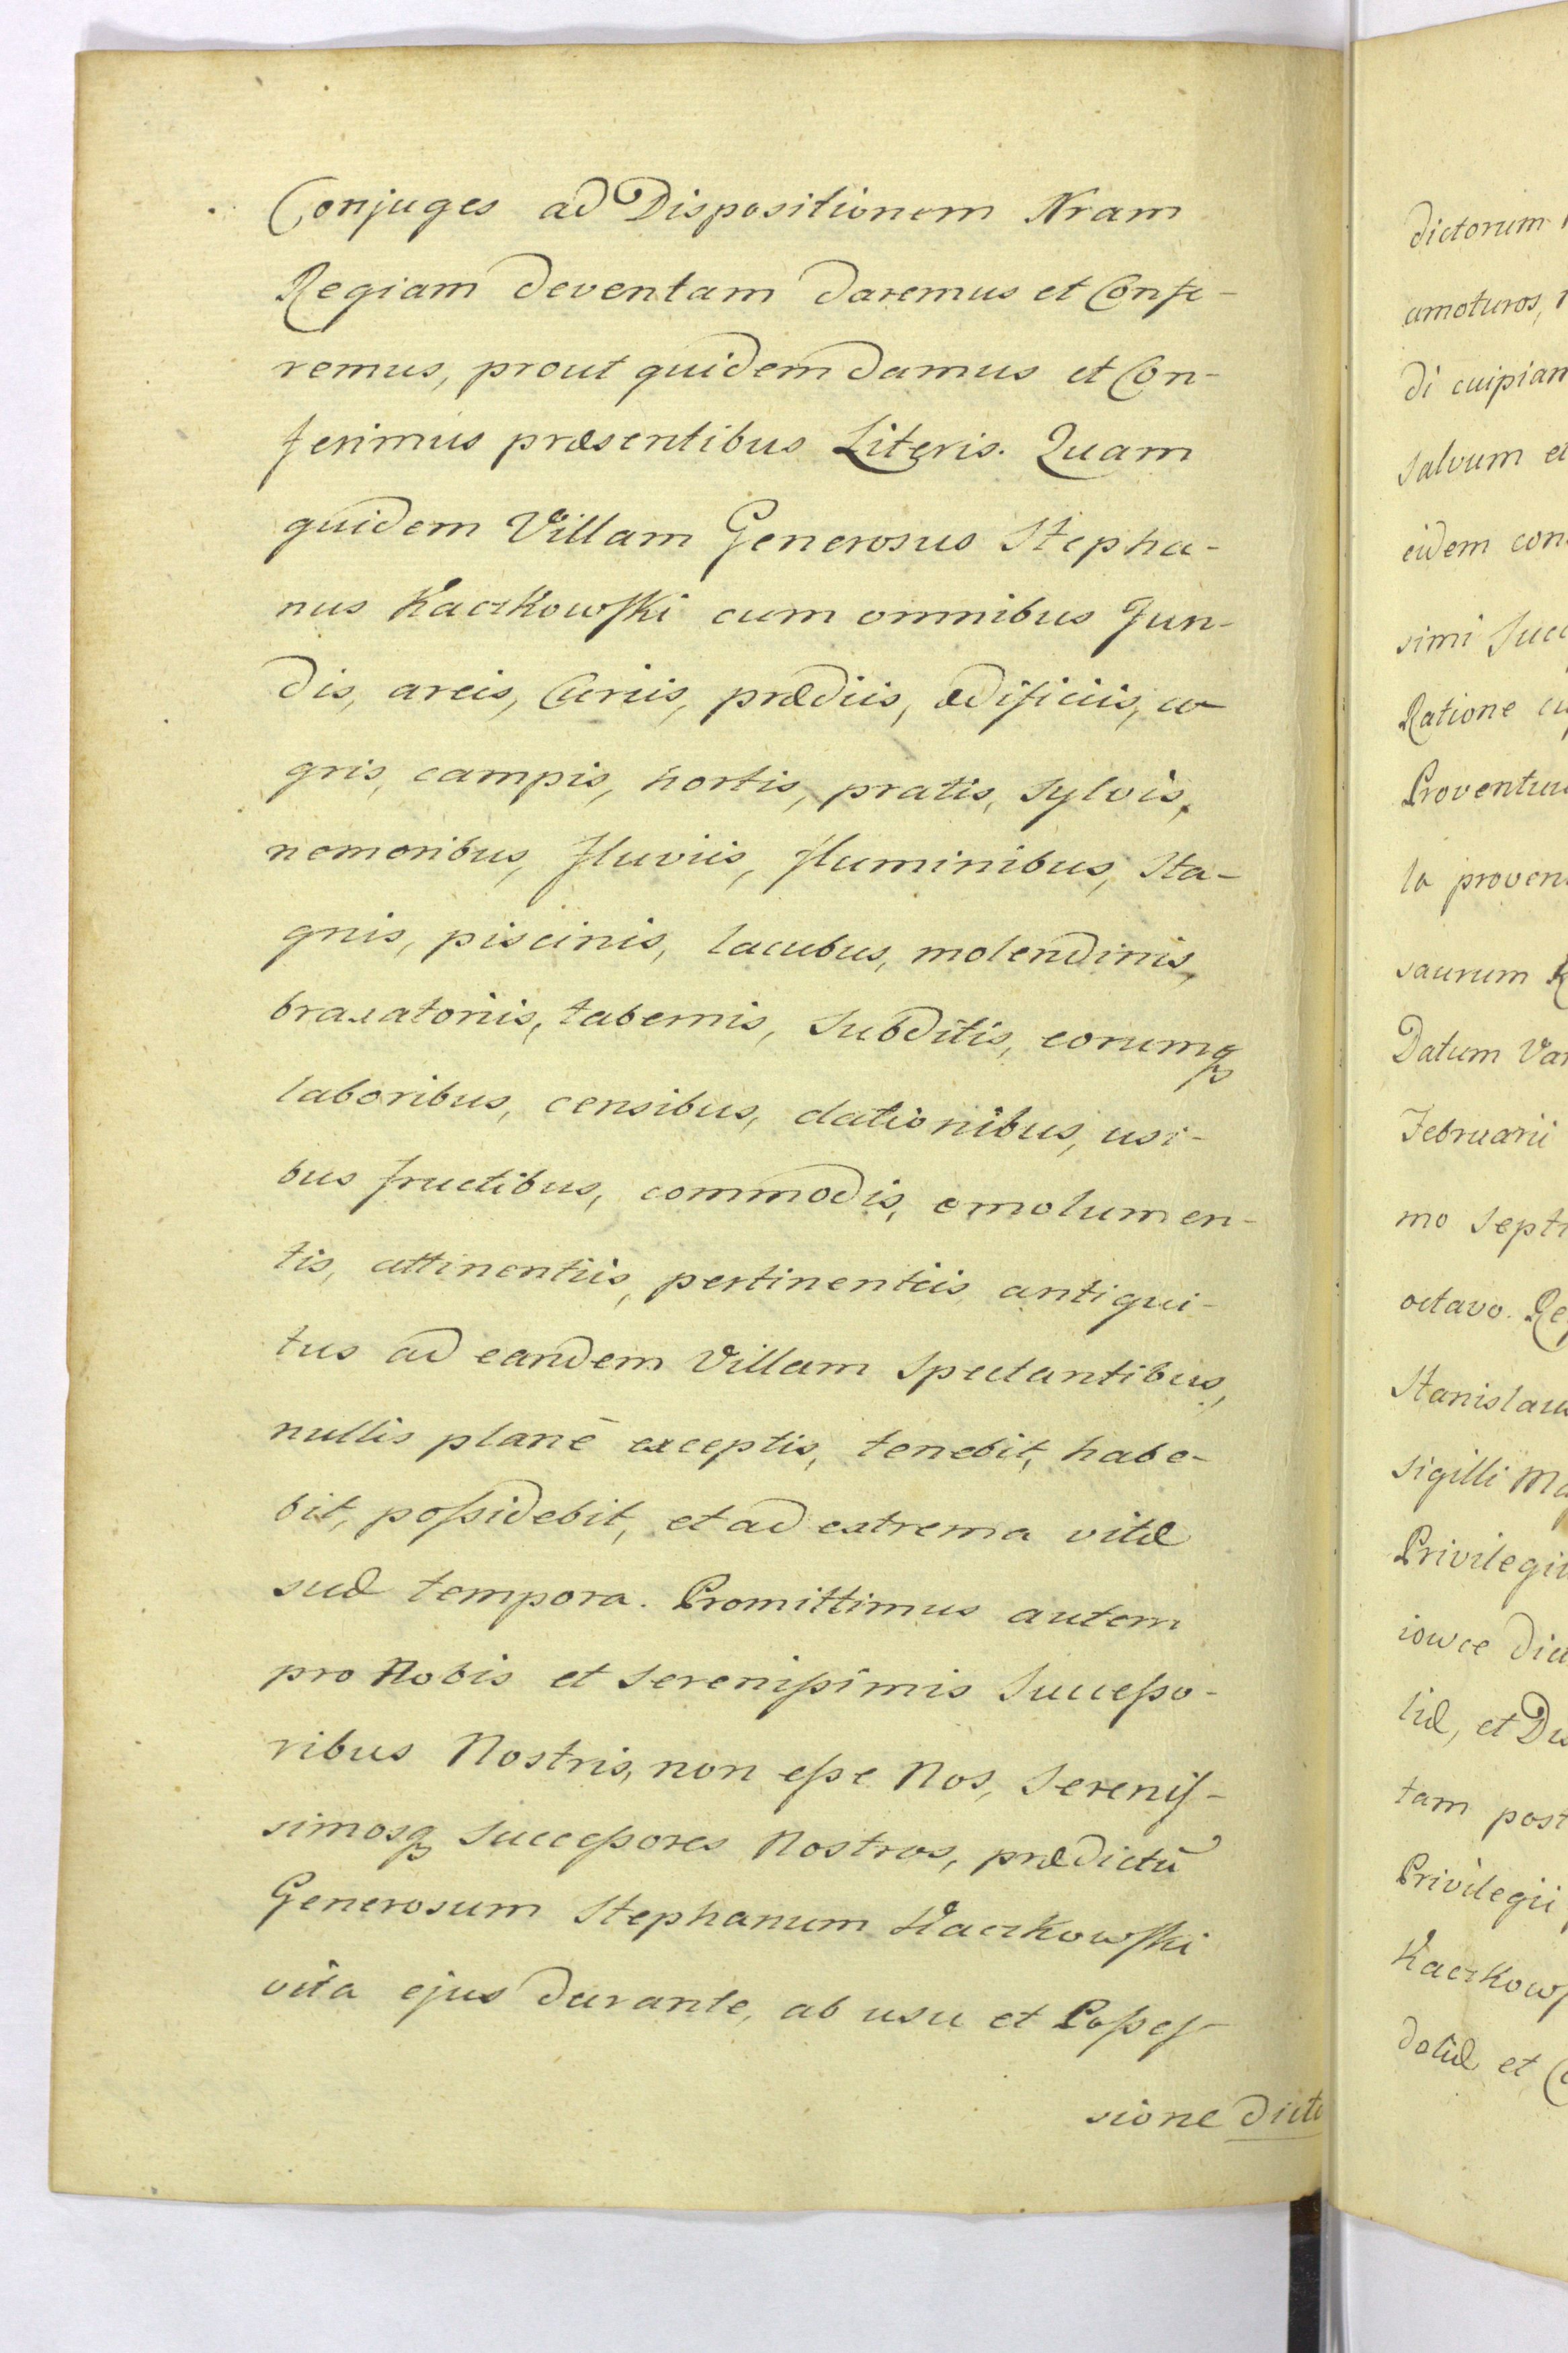 Conjuges ad Dispositionem Nram
Regiam deventam daremus et Confe-
remus, prout quidem damus et Con-
ferimus præsentibus Literis. Quam
quidem Villam Generosus Stepha-
nus Kaczkowski cum omnibus Fun-
dis, areis, Curiis, prædiis, ædificiis, a-
gris, campis, hortis, pratis, sylvis,
nemoribus, fluviis, fluminibus, sta-
gnis, piscinis, lacubus, molendinis,
braxatoriis, tabernis, subditis, eorumq
laboribus, censibus, dationibus, usi-
bus fructibus, commodis, emolumen-
tis, attinentiis, pertinentiis antiqui-
tus ad eandem Villam spectantibus,
nullis planè exceptis, tenebit, habe-
bit, possidebit, et ad extrema vitæ
suæ tempora. Promittimus autem
pro Nobis et Serenissimis Successo-
ribus Nostris, non esse Nos, Serenis-
simosq Successores Nostros, prædictū
Generosum Stephanum Kaczkowski
vita ejus durante, ab usu et Posses-
sione dicto
dictorum
amoturos,
di cuipiam
salvum et
eidem con
simi Succ
Ratione cu
Proventu
la proven
saurum
Datum Var
Februarii
mo Septi
octavo. Re
Stanislaus
Sigilli Ma
Privilegii
iowce dict
liæ, et Du
tam post
Privilegii
Kaczkows
dotiæ et